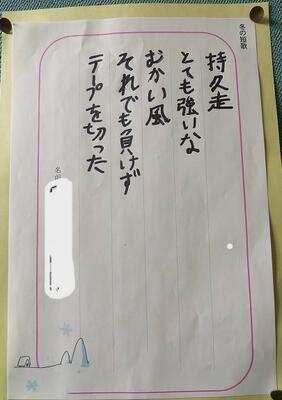 冬の短歌
持久走
とても強いな
むかい風
それでも負けず
テープを切った
名前